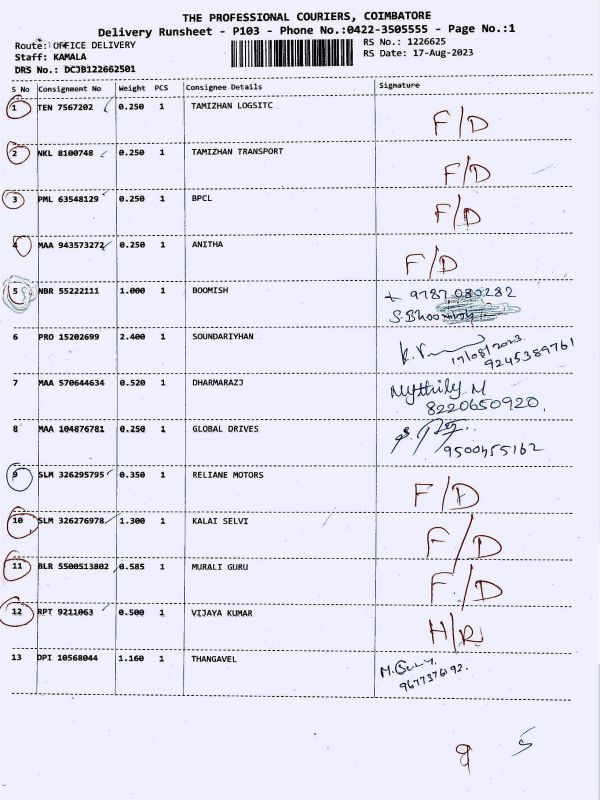 THE PROFESSIONAL COURIERS, COIMBATORE
Delivery Runsheet - P103 - Phone No.:0422-3505555 - Page No.:1
Route: OFFICE DELIVERY RS No.: 1226625
Staff: KAMALA RS Date: 17-Aug-2023
DRS No.: DCJB122662501
S No Consignment No Weight PCS Consignee Details Signature
1 TEN 7567202 0.250 1 TAMIZHAN LOGSITC F/D
2 NKL 8100748 0.250 1 TAMIZHAN TRANSPORT F/D
3 PML 63548129 0.250 1 BPCL F/D
4 MAA 943573272 0.250 1 ANITHA F/D
5 NBR 55222111 1.000 1 BOOMISH 9787080282
6 PRO 15202699 2.400 1 SOUNDARIYHAN 17/08/2023
9245389761
7 MAA 570644634 0.520 1 DHARMARAZJ Mythily M
8220650920.
8 MAA 104876781 0.250 1 GLOBAL DRIVES
9500455162
9 SLM 326295795 0.350 1 RELIANE MOTORS F/D
10 SLM 326276978 1.300 1 KALAI SELVI F/D
11 BLR 5500513802 0.585 1 MURALI GURU F/D
12 RPT 9211063 0.500 1 VIJAYA KUMAR H/R
13 DPI 10568044 1.160 1 THANGAVEL
9677376192.
9 5